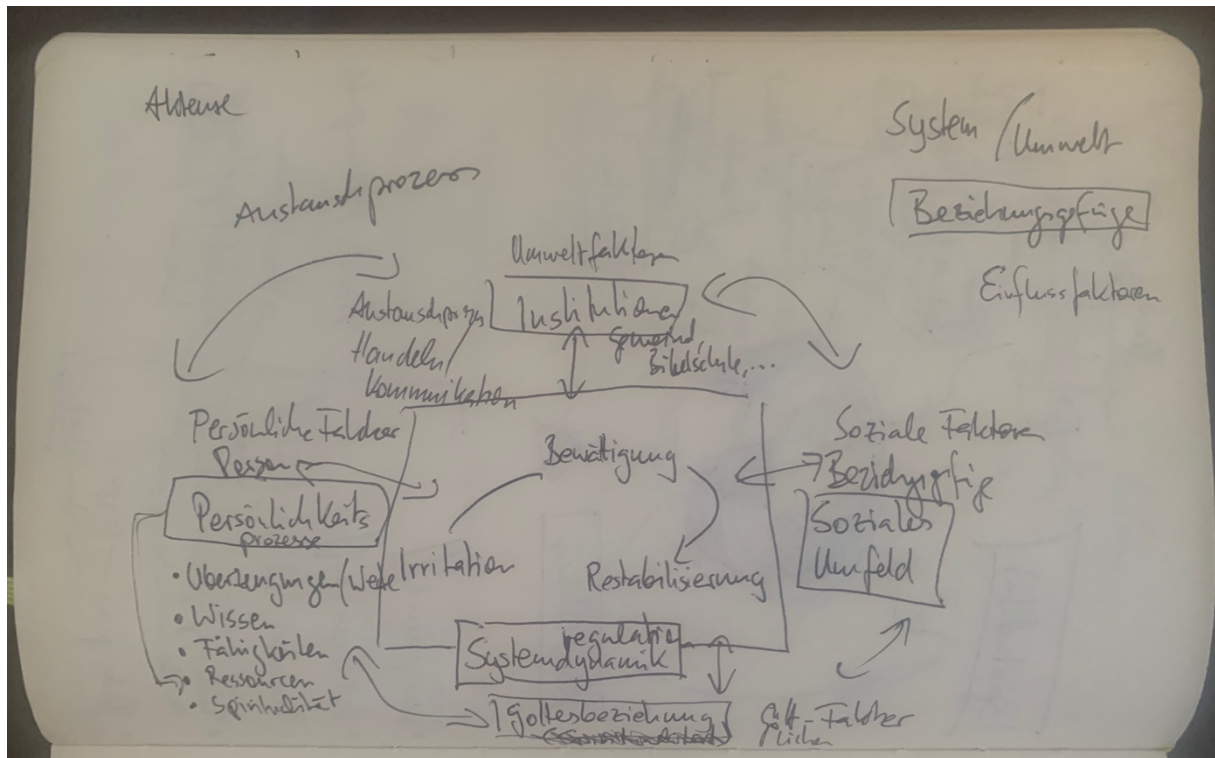 Akteure
System / Umwelt
Austauschprozess
Beziehungsgefüge
Umweltfaktoren
Einflussfaktoren
Institutionen
Austauschprozess
Handeln/
Kommunikation
Gemeind,
Bibelschule, ...
Persönliche Faktoren
Person
Persönlichkeits
prozesse
• Überzeugungen/Werte
• Wissen
• Fähigkeiten
• Ressourcen
• Spiritualität
Bewältigung
Irritation
Restabilisierung
Soziale Faktoren
Beziehungsgefüge
Soziales
Umfeld
regulative
Systemdydamik
Gottesbeziehung
Göttliche Faktor